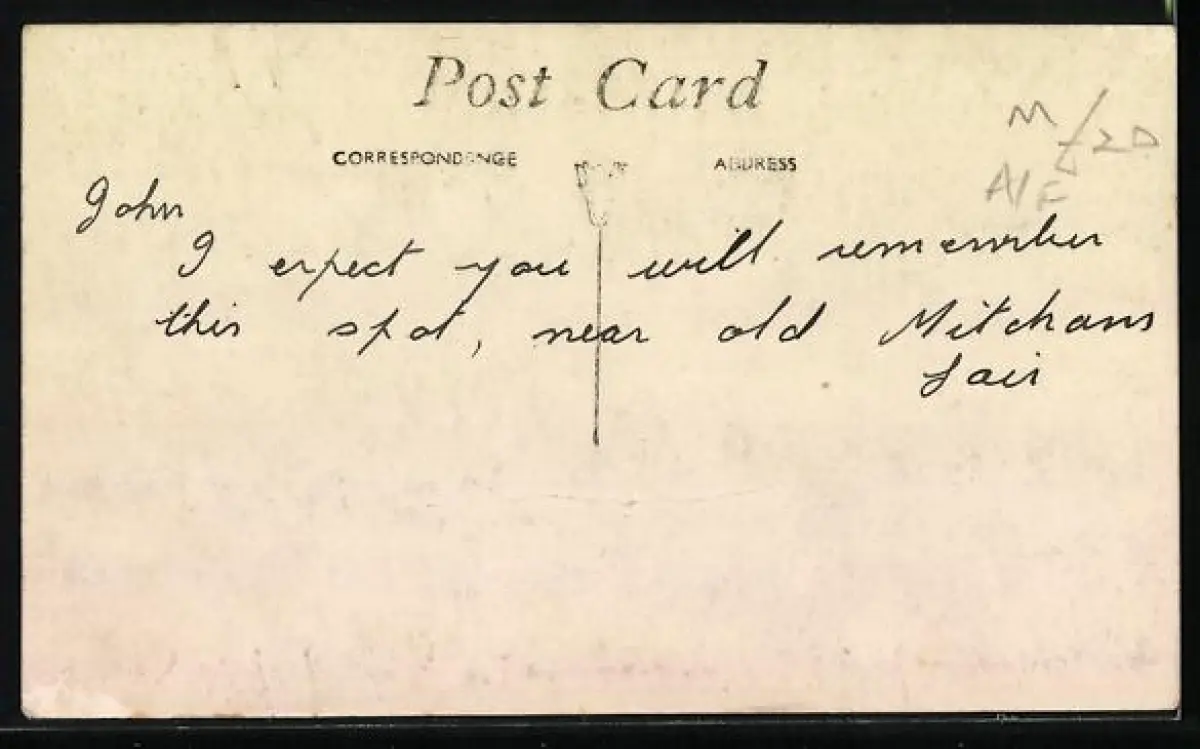 Post Card
CORRESPONDENCE ADDRESS
John
I expect you will remember
this spot, near old Mitchams
fair